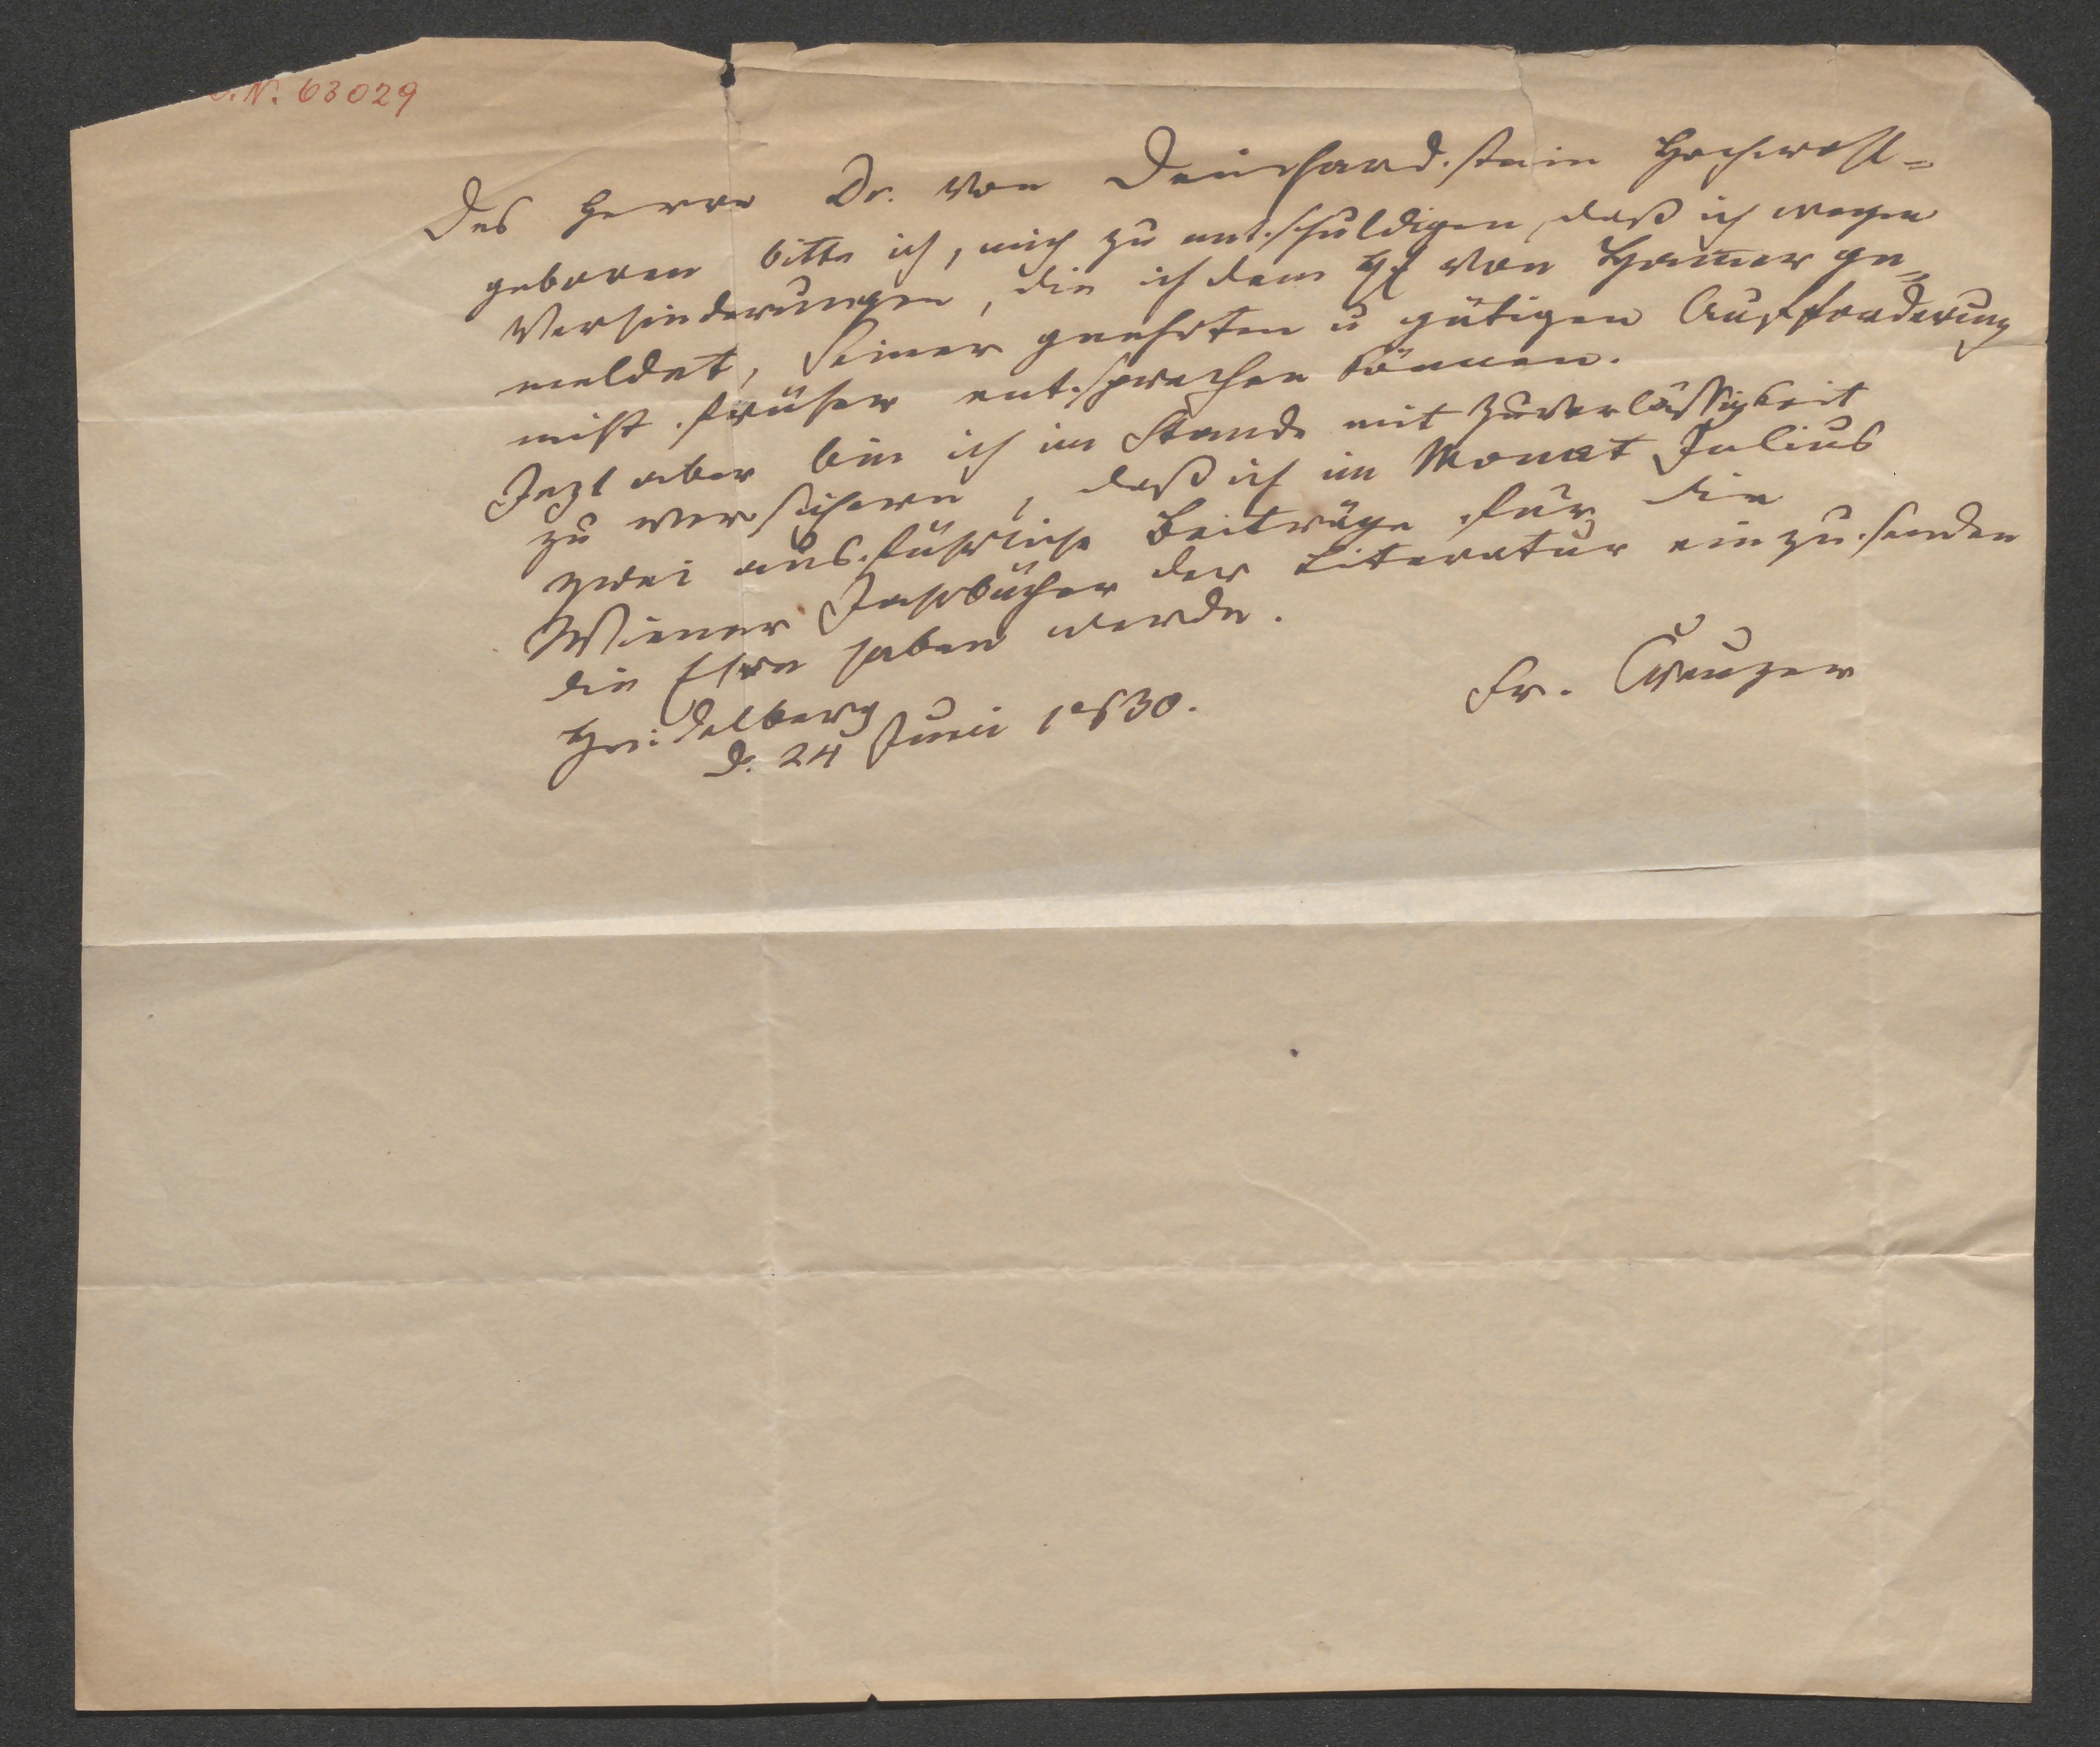 J.N. 63029
Des Herrn Dr. von Deinhardstein Hochwohl-
geboren bitte ich, mich zu entschuldigen, daß ich wegen
Verhinderungen, die ich dem H von Hamer ge-
meldet, Seiner geehrten u gütigen Aufforderung
nicht früher entsprechen können.
Jezt aber bin ich im Stande mit Zuverlässigkeit
zu versichern, daß ich im Monat Julius
zwei ausführliche Beiträge für die
Wiener Jahrbücher der Literatur einzusenden
die Ehre haben werde.
Heidelberg
d. 24 Juni 1830.
Fr. Creuzer